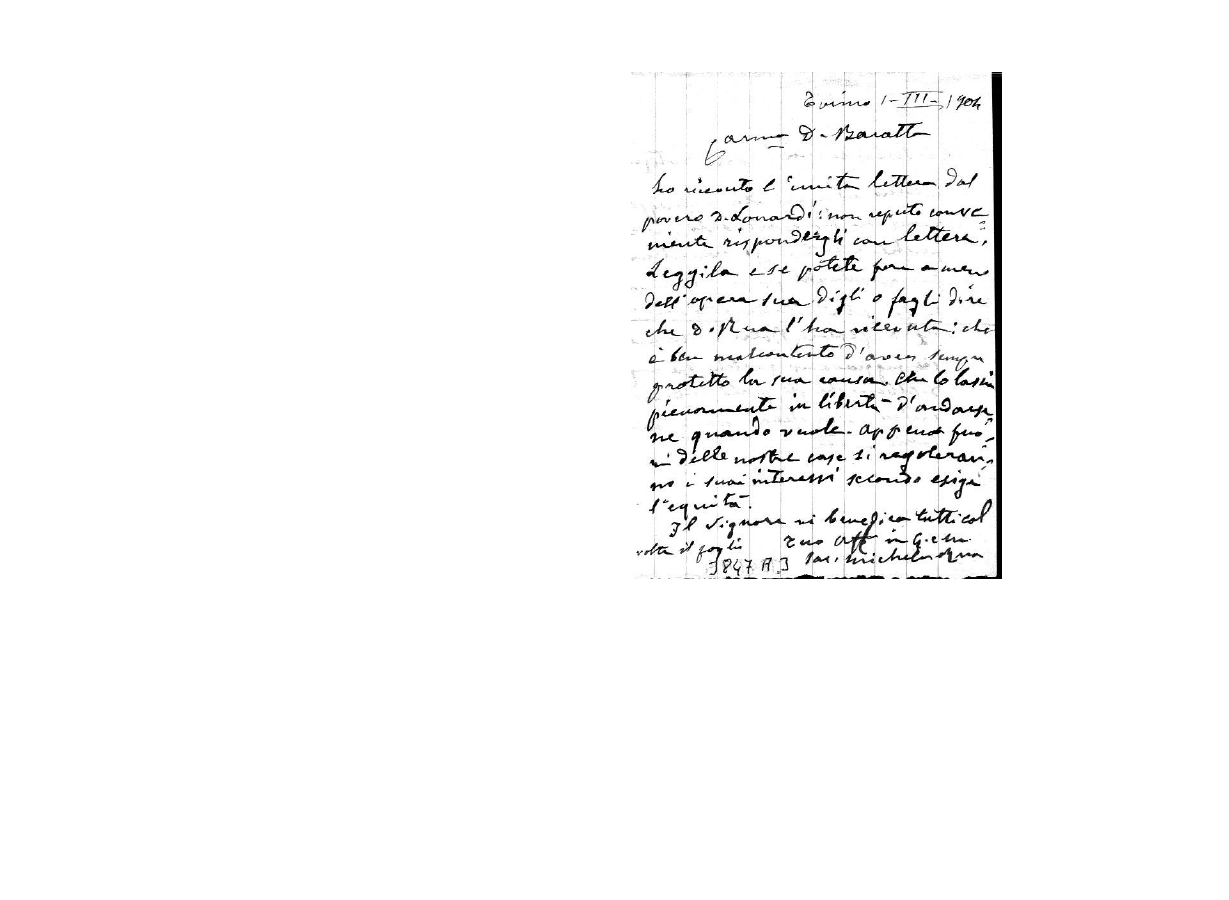 Torino 1-III-1904
Carmo D. Baratta
ho ricevuto l'unita lettera dal
povero D. Lonardi: non reputo conve
niente rispondergli con lettera.
Leggila e se potete fare a meno
dell'opera sua digli o fagli dire
che D. Rua l'ha ricevuta: che
è ben malcontento d'aver sempre
protetto la sua causa. Che lo lascia
pienamente in libertà d'andarse
ne quando vuole. Appena fuo
ri delle nostre case si regoleran
no i suoi interessi secondo esige
l'equità.
Il Signore vi benedica tutti col
volta il foglio tuo aff in G. e M.
Sac. Michele Rua
3847 A 3